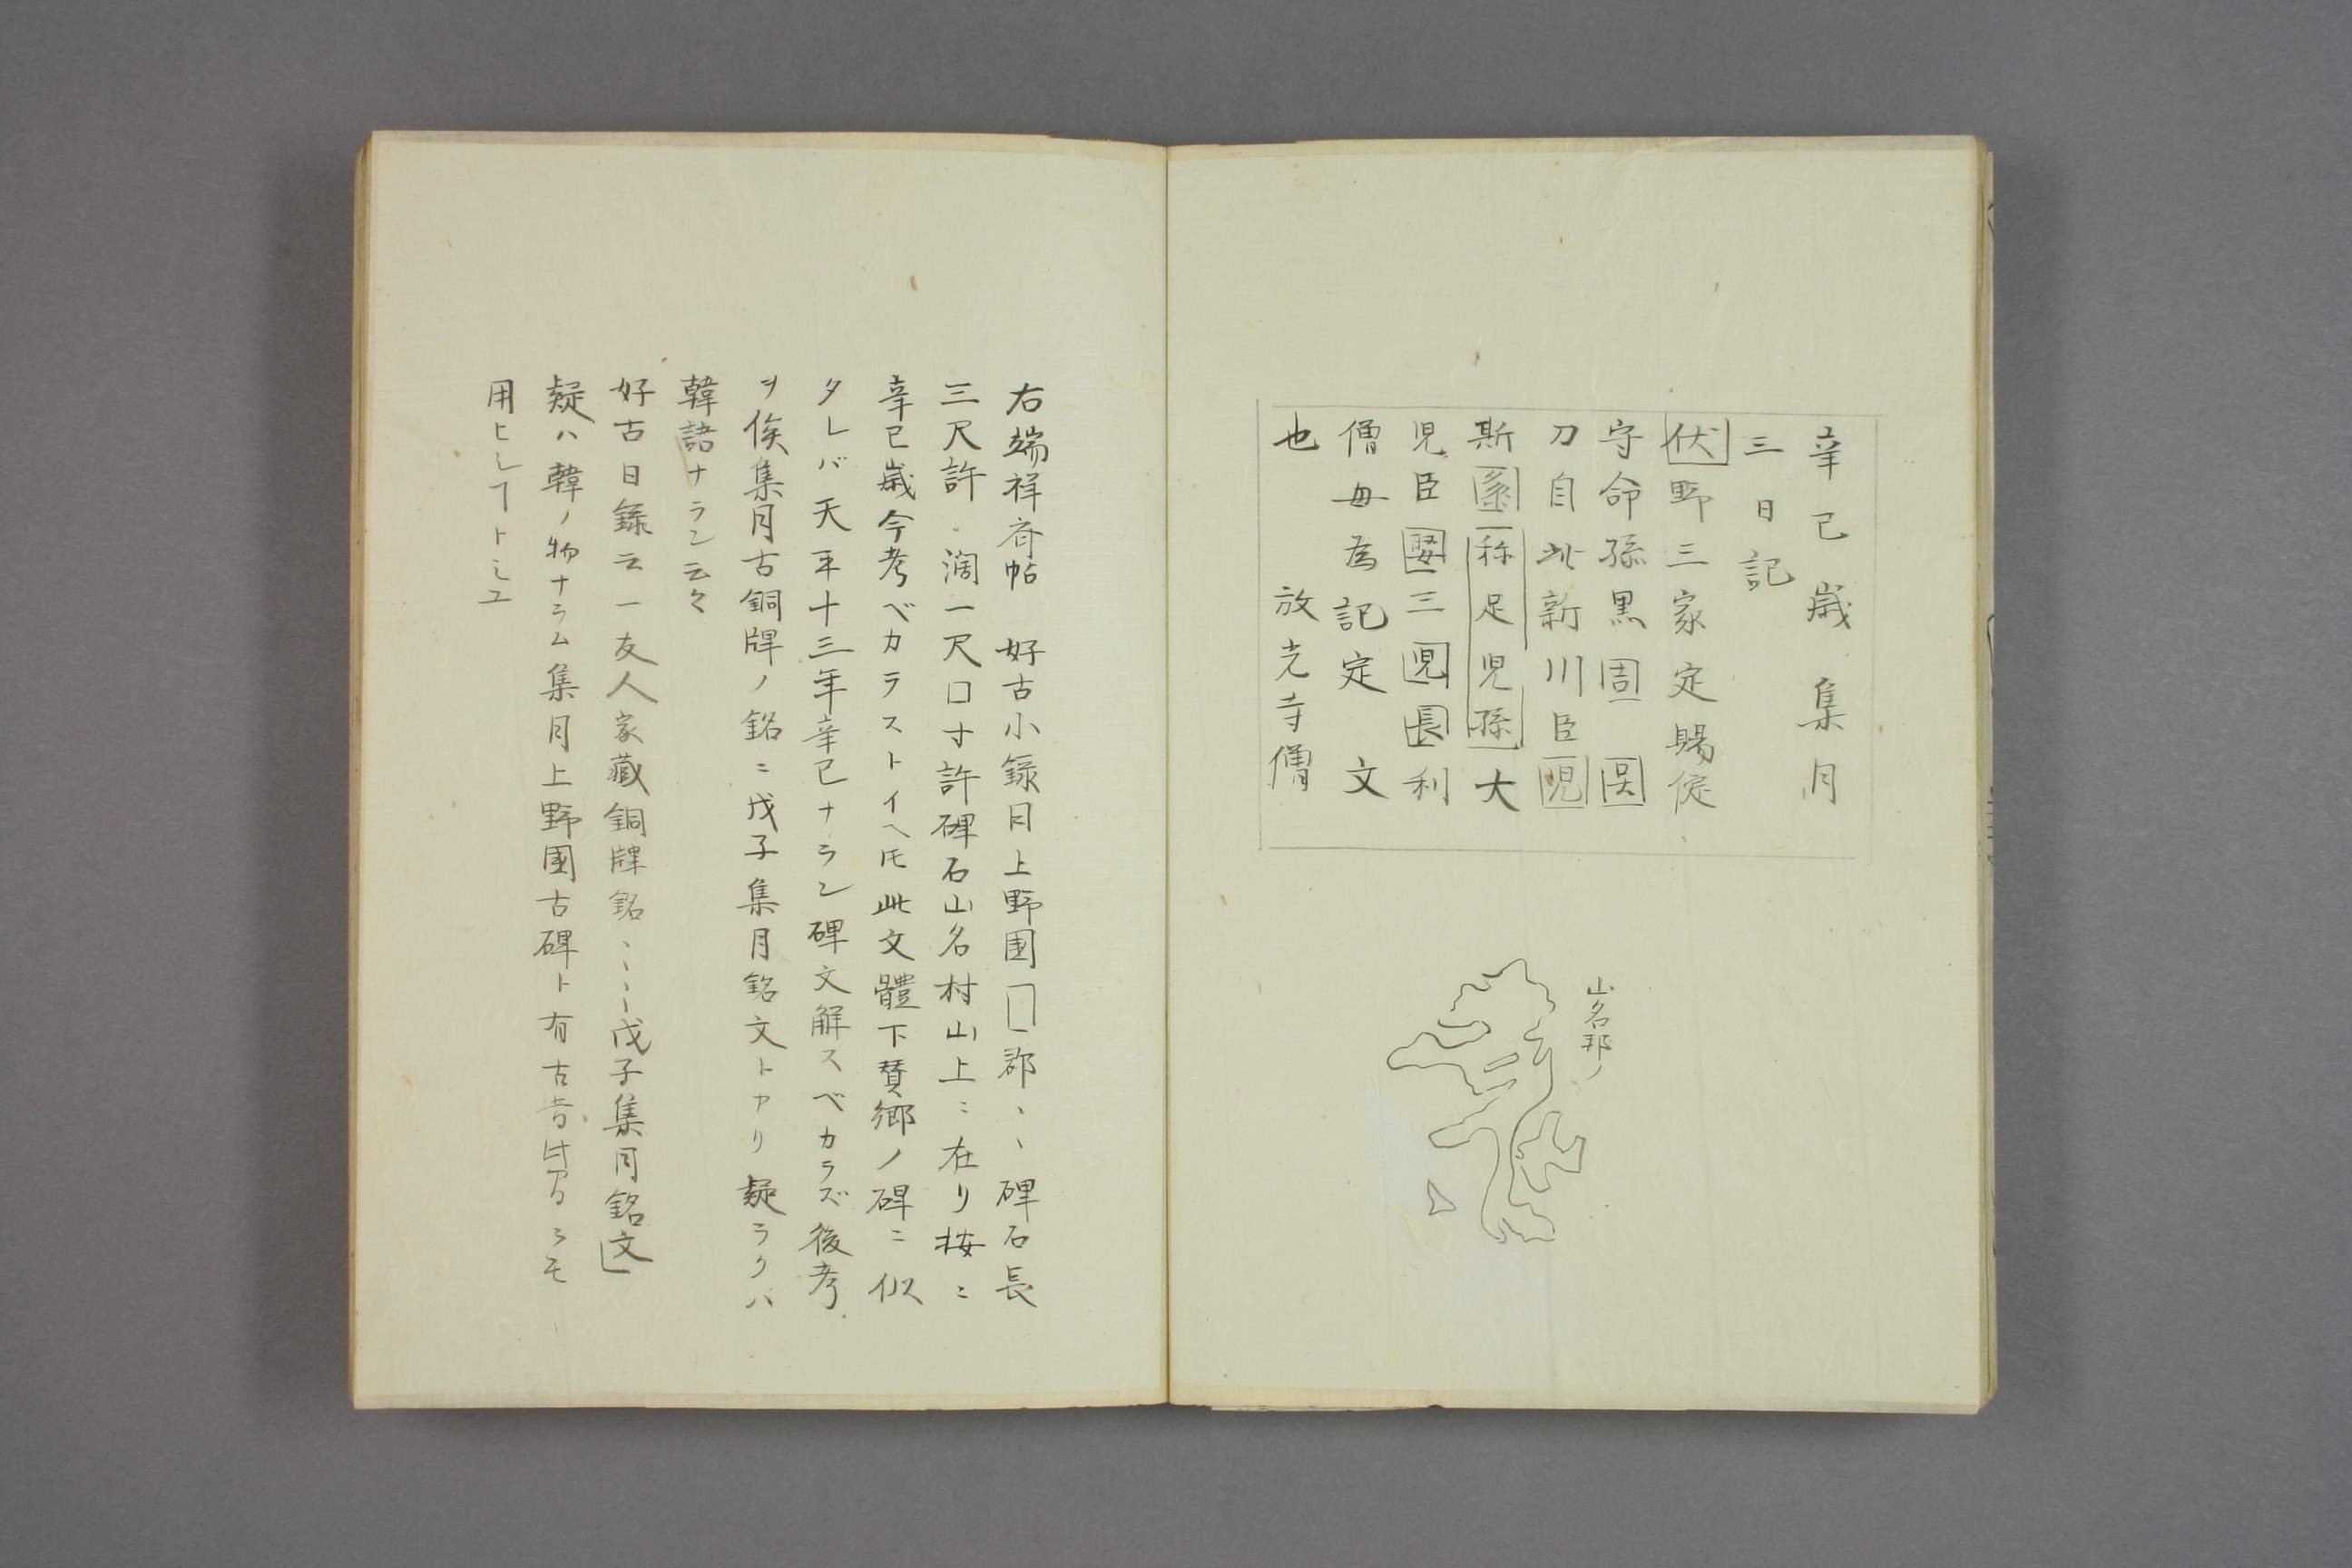 辛己歳集月
三日記
伏野三家定賜従
守命孫黒
刀自此新川臣児
斯 称足児孫大
児臣娶三児長利
僧母為記定文
也 放光寺僧
山名邦ノ
右端祥斎帖 好古小録日上野国 郡、、碑石長
三尺許潤一尺口寸許碑石山名村山上ニ在リ按ニ
辛已歳今考ベカラストイヘ𪜈此文體下賛郷ノ碑ニ似
タレバ天平十三年辛已ナラン碑文解スベカラズ後考
ヲ俟集月古銅牌ノ銘ニ戊子集月銘文トアリ疑ラクハ
韓語ナラン云々
好古日録云一友人家蔵銅牌銘、、、、戊子集月銘文
疑ハ韓ノ物ナラム集月上野國古碑ト有古昔
用ヒシヿトミユ